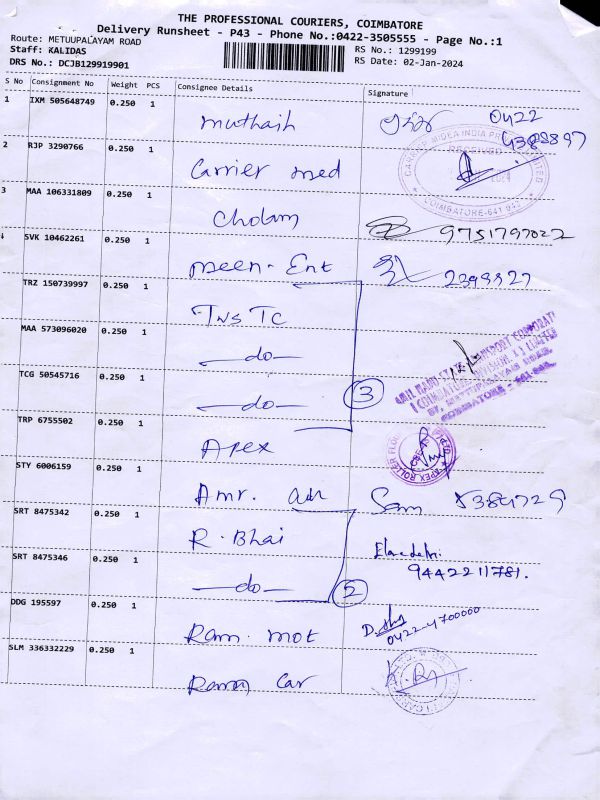 THE PROFESSIONAL COURIERS, COIMBATORE
Delivery Runsheet - P43 - Phone No.:0422-3505555 - Page No.:1
Route: METUUPALAYAM ROAD
Staff: KALIDAS
DRS No.: DCJB129919901
RS No.: 1299199
RS Date: 02-Jan-2024
S No Consignment No Weight PCS Consignee Details Signature
1 IXM 505648749 0.250 1
muthaih 0422
2 RJP 3290766 0.250 1
Carrier med
CARRIER MIDEA INDIA PRIVATE LIMITED
RECEIVED
COIMBATORE-641
3 MAA 106331809 0.250 1
Cholam 9751797022
4 SVK 10462261 0.250 1
meen. Ent
TRZ 150739997 0.250 1
Tns TC
MAA 573096020 0.250 1
-do-
TCG 50545716 0.250 1
-do- 3
TRP 6755502 0.250 1
Apex
APEX ROLLER FLO
STY 6006159 0.250 1
Amr. Sam
SRT 8475342 0.250 1
R. Bhai
SRT 8475346 0.250 1
-do- 2 9442211781.
DDG 195597 0.250 1
Ram. mot 0422-4700000
SLM 336332229 0.250 1
Car